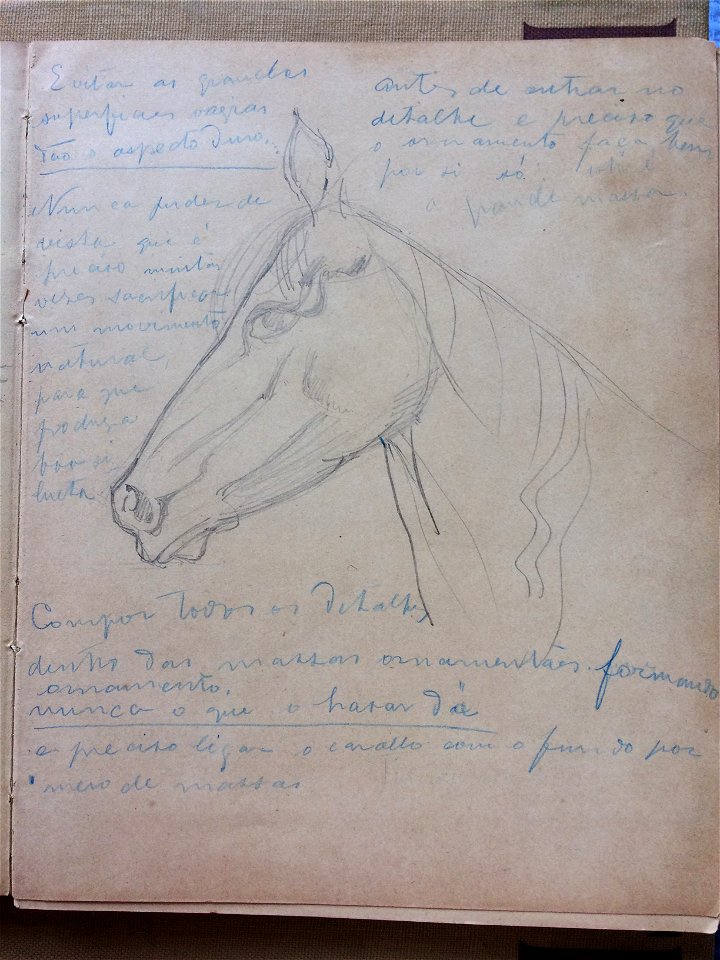 Evitar as grandes
superficies vagas
dão o aspecto duro.
antes de entrar no
detalhe e preciso que
o ornamento faça bem
por si só isto é
a grande massa.
Nunca perder de
vista que é
preciso muitas
vezes sacrificar
um movimento
natural,
para que
produza
boa si
lueta.
Compor todos os detalhes
dentro das massas ornamentaes. formando
ornamento.
nunca o que o hasar dá
e preciso ligar o cavallo com o fundo por
meio de massas